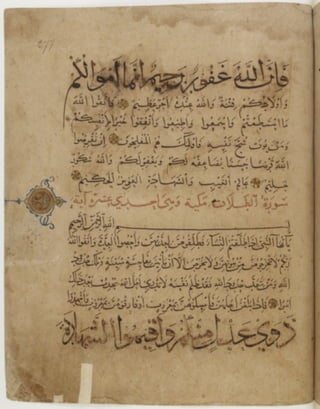 فَإِنَّ اللَّهَ غَفُورٌ رَحِيمٌ إِنَّمَا أَمْوَالُكُمْ
وَأَوْلَادُكُمْ فِتْنَةٌ وَاللَّهُ عِنْدَهُ أَجْرٌ عَظِيمٌ فَاتَّقُوا اللَّهَ
مَا اسْتَطَعْتُمْ وَاسْمَعُوا وَأَطِيعُوا وَأَنْفِقُوا خَيْرًا لِأَنْفُسِكُمْ
وَمَنْ يُوقَ شُحَّ نَفْسِهِ فَأُولَئِكَ هُمُ الْمُفْلِحُونَ إِنْ تُقْرِضُوا
اللَّهَ قَرْضًا حَسَنًا يُضَاعِفْهُ لَكُمْ وَيَغْفِرْ لَكُمْ وَاللَّهُ شَكُورٌ
حَلِيمٌ عَالِمُ الْغَيْبِ وَالشَّهَادَةِ الْعَزِيزُ الْحَكِيمُ
سورة الطلاق مكية وهي احدى عشرة آية
بسم الله الرحمن الرحيم
يَا أَيُّهَا النَّبِيُّ إِذَا طَلَّقْتُمُ النِّسَاءَ فَطَلِّقُوهُنَّ لِعِدَّتِهِنَّ وَأَحْصُوا الْعِدَّةَ وَاتَّقُوا اللَّهَ
رَبَّكُمْ لَا تُخْرِجُوهُنَّ مِنْ بُيُوتِهِنَّ وَلَا يَخْرُجْنَ إِلَّا أَنْ يَأْتِينَ بِفَاحِشَةٍ مُبَيِّنَةٍ وَتِلْكَ حُدُودُ
اللَّهِ وَمَنْ يَتَعَدَّ حُدُودَ اللَّهِ فَقَدْ ظَلَمَ نَفْسَهُ لَا تَدْرِي لَعَلَّ اللَّهَ يُحْدِثُ بَعْدَ ذَلِكَ
أَمْرًا فَإِذَا بَلَغْنَ أَجَلَهُنَّ فَأَمْسِكُوهُنَّ بِمَعْرُوفٍ أَوْ فَارِقُوهُنَّ بِمَعْرُوفٍ وَأَشْهِدُوا
ذَوَيْ عَدْلٍ مِنْكُمْ وَأَقِيمُوا الشَّهَادَةَ